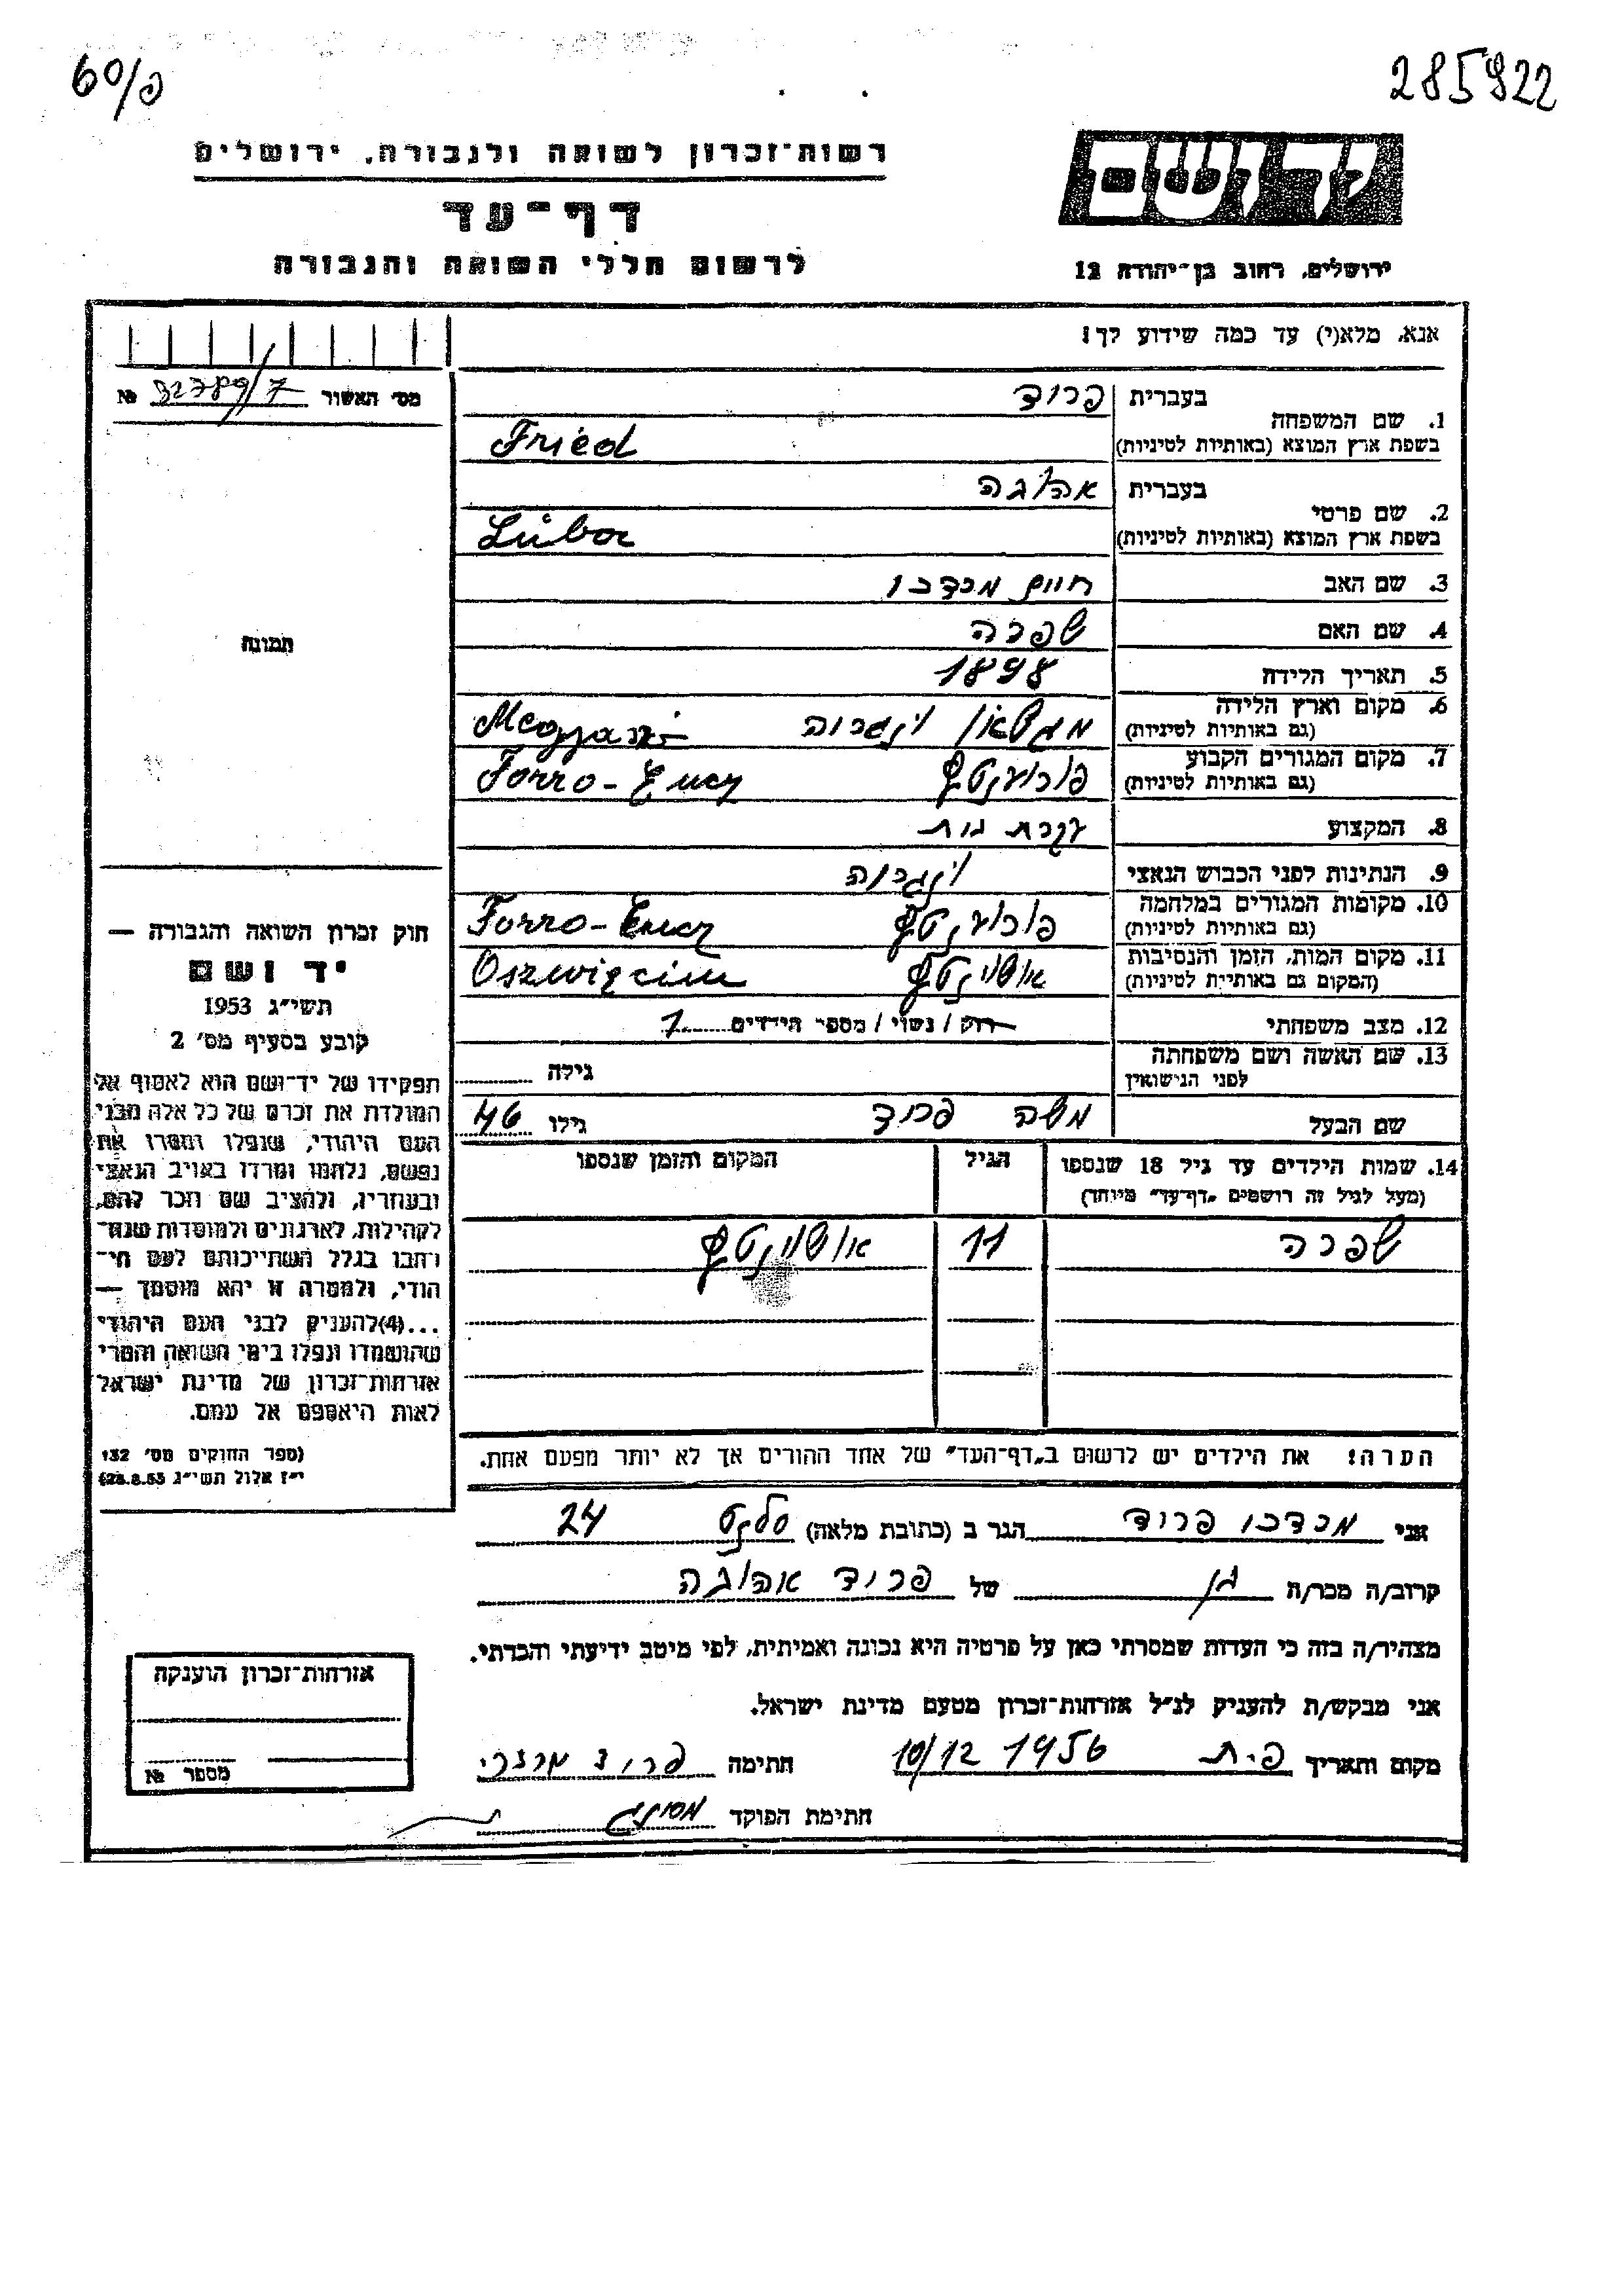 60/פ
285922
רשות־זכרון לשואה ולגבורה, ירושלים
דף־עד
לרשום חללי השואה והגבורה
יד ושם
ירושלים, רחוב בן־יהודה 12
אנא, מלא(י) עד כמה שידוע לך!
מס׳ האשור 32789/7 №
תמונה
1. שם המשפחה בעברית פריד
בשפת ארץ המוצא (באותיות לטיניות) Fried
2. שם פרטי בעברית אהובה
בשפת ארץ המוצא (באותיות לטיניות) Lüba
3. שם האב חיים מרדכי
4. שם האם שפרה
5. תאריך הלידה 1898
6. מקום וארץ הלידה הונגריה
(גם באותיות לטיניות)
7. מקום המגורים הקבוע Forro-Encz
(גם באותיות לטיניות)
8. המקצוע עקרת בית
9. הנתינות לפני הכבוש הנאצי הונגריה
10. מקומות המגורים במלחמה Forro-Encz
(גם באותיות לטיניות)
11. מקום המות, הזמן והנסיבות Oszwięcim
(המקום גם באותיות לטיניות)
12. מצב משפחתי רוק / נשוי / מספר הילדים 7
13. שם האשה ושם משפחתה
לפני הנישואין גילה
שם הבעל משה פריד גילו 46
14. שמות הילדים עד גיל 18 שנספו הגיל המקום והזמן שנספו
(מעל לגיל זה רושמים „דף־עד״ מיוחד)
שפרה 11
הערה! את הילדים יש לרשום ב„דף־העד״ של אחד ההורים אך לא יותר מפעם אחת.
חוק זכרון השואה והגבורה —
יד ושם
תשי״ג 1953
קובע בסעיף מס׳ 2
תפקידו של יד־ושם הוא לאסוף אל
המולדת את זכרם של כל אלה מבני
העם היהודי, שנפלו ומסרו את
נפשם, נלחמו ומרדו באויב הנאצי
ובעוזריו, ולהציב שם וזכר להם,
לקהילות, לארגונים ולמוסדות שנח־
רבו בגלל השתייכותם לעם הי־
הודי, ולמטרה זו יהא מוסמך —
...(4)להעניק לבני העם היהודי
שהושמדו ונפלו בימי השואה והמרי
אזרחות־זכרון של מדינת ישראל
לאות היאספם אל עמם.
(ספר החוקים מס׳ 132
י״ז אלול תשי״ג 28.8.53)
אני מרדכי פריד הגר ב (כתובת מלאה) 24
קרוב/ה מכר/ה בן של פריד אהובה
מצהיר/ה בזה כי העדות שמסרתי כאן על פרטיה היא נכונה ואמיתית, לפי מיטב ידיעתי והכרתי.
אני מבקש/ת להעניק לנ״ל אזרחות־זכרון מטעם מדינת ישראל.
מקום ותאריך פ.ת 10/12 1956 חתימה פריד מרדכי
חתימת הפוקד
אזרחות־זכרון הוענקה
מספר №